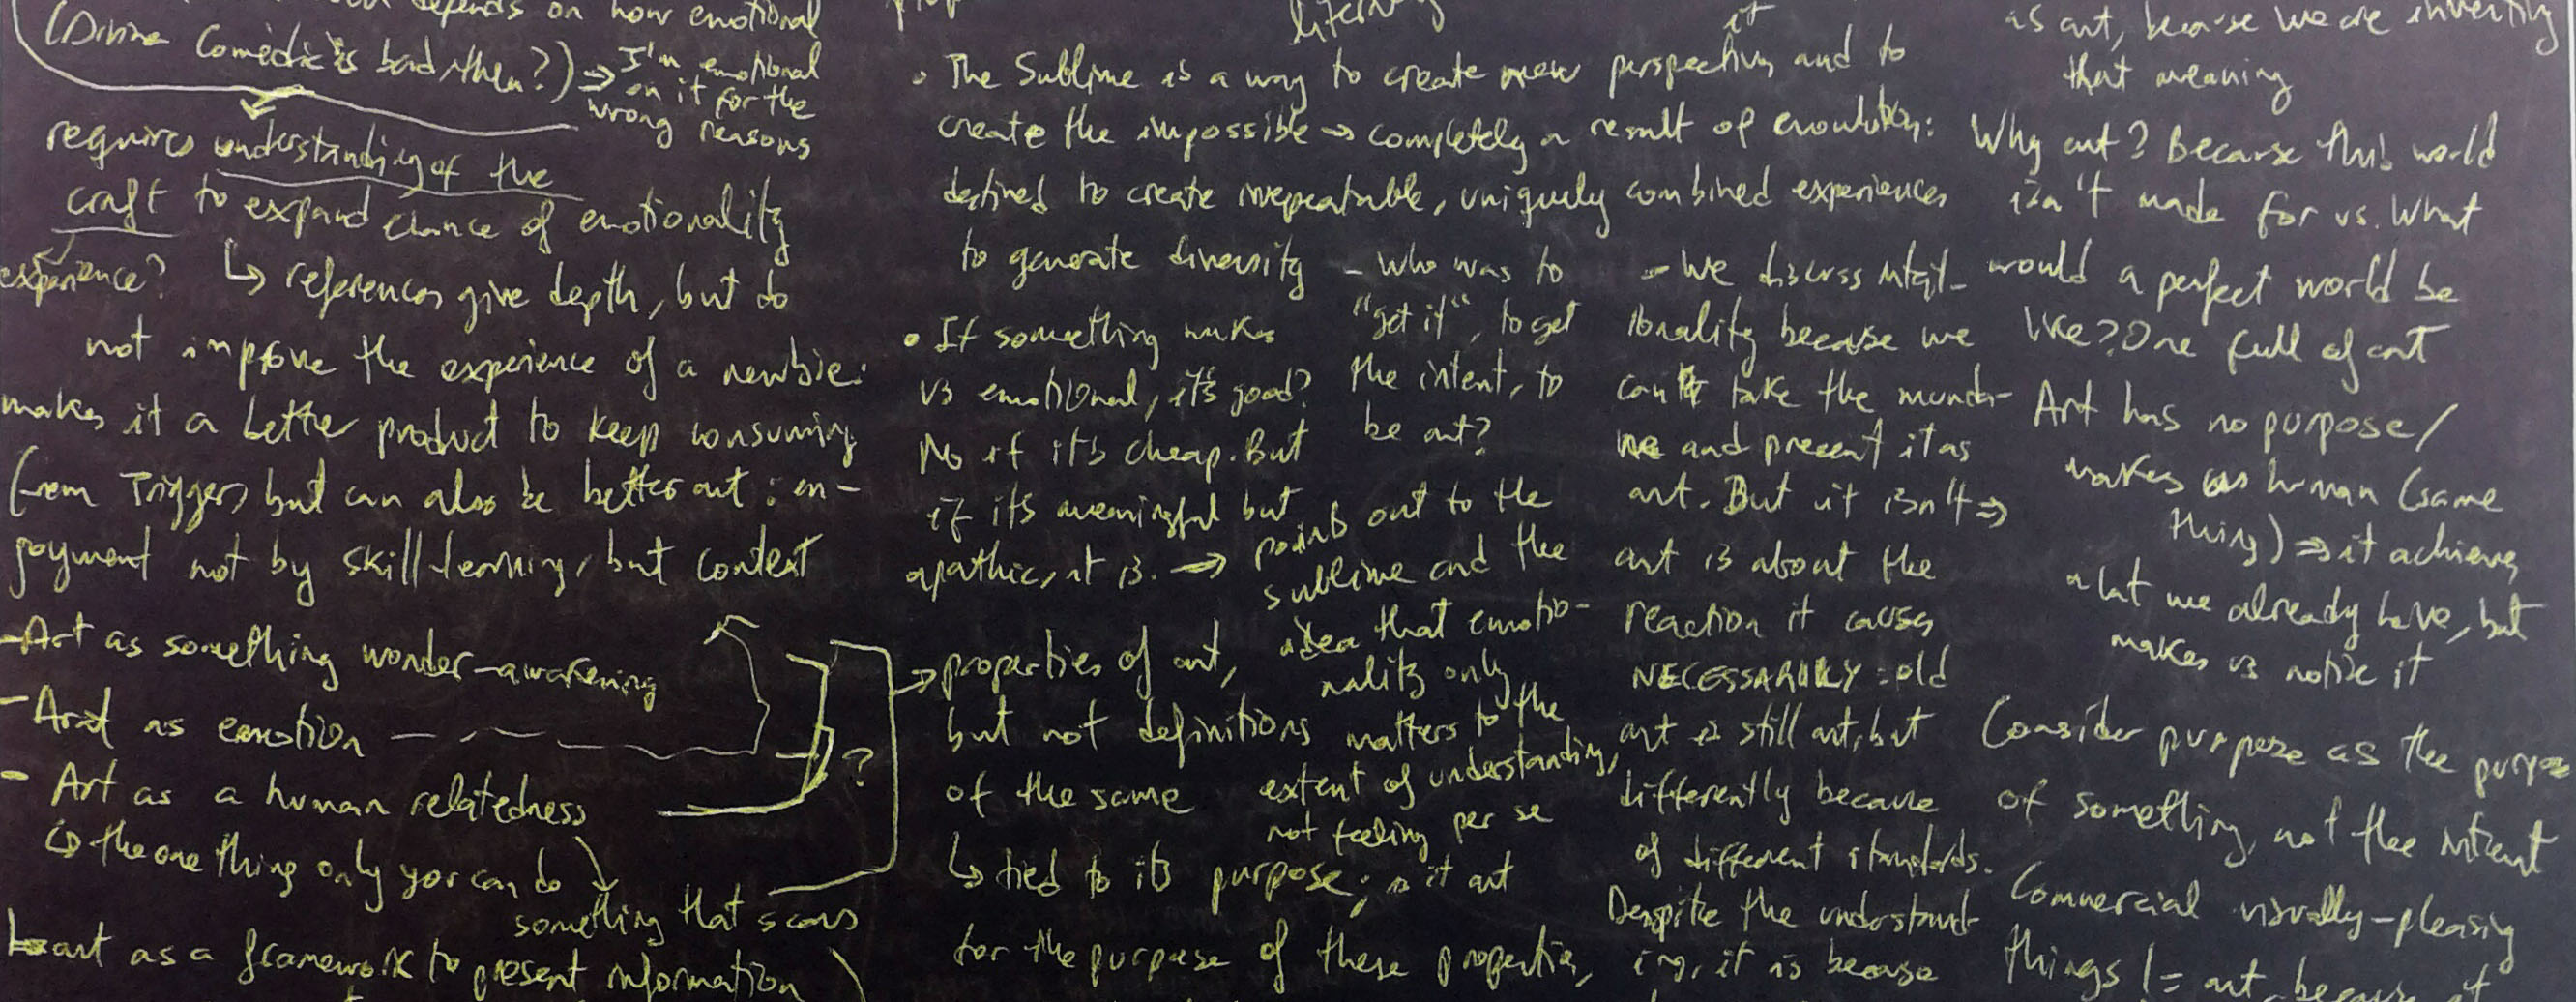 depends on how emotional
(Divine Comedie is bad then?) => I'm emotional
on it for the
wrong reasons
requires understanding of the
craft to expand chance of emotionality
experience? ↳ references give depth, but do
not improve the experience of a newbie:
makes it a better product to keep consuming
(from Trigger) but can also be better art: en-
joyment not by skill-learning, but context
- Art as something wonder-awakening
- Art as emotion
- Art as a human relatedness
?
↳ the one thing only you can do
something that scars
art as a framework to present information
literary
it
• The Sublime is a way to create new perspectives and to
create the impossible → completely a result of evolution:
destined to create unrepeatable, uniquely combined experiences
to generate diversity
• If something makes
us emotional, it's good?
No if it's cheap. But
if it's meaningful but
apathic, it is. → points out to the
sublime and the
idea that emotio-
nality only
matters to the
extent of understanding,
not feeling per se
→ properties of art,
but not definitions
of the same
↳ tied to its purpose; is it art
for the purpose of these properties,
- who was to
"get it", to get
the intent, to
be art?
- We discuss intent-
ionality because we
can take the munda-
ne and present it as
art. But it isn't =>
art is about the
reaction it causes
NECESSARILY: old
art is still art, but
differently because
of different standards.
Despite the understand-
ing, it is because
as art, because we are inventing
that meaning
Why art? Because this world
isn't made for us. What
would a perfect world be
like? One full of art
Art has no purpose/
makes us human (same
thing) => it achieves
what we already have, but
makes us notice it
Consider purpose as the purpose
of something, not the intent
Commercial visually-pleasing
things != art, because it